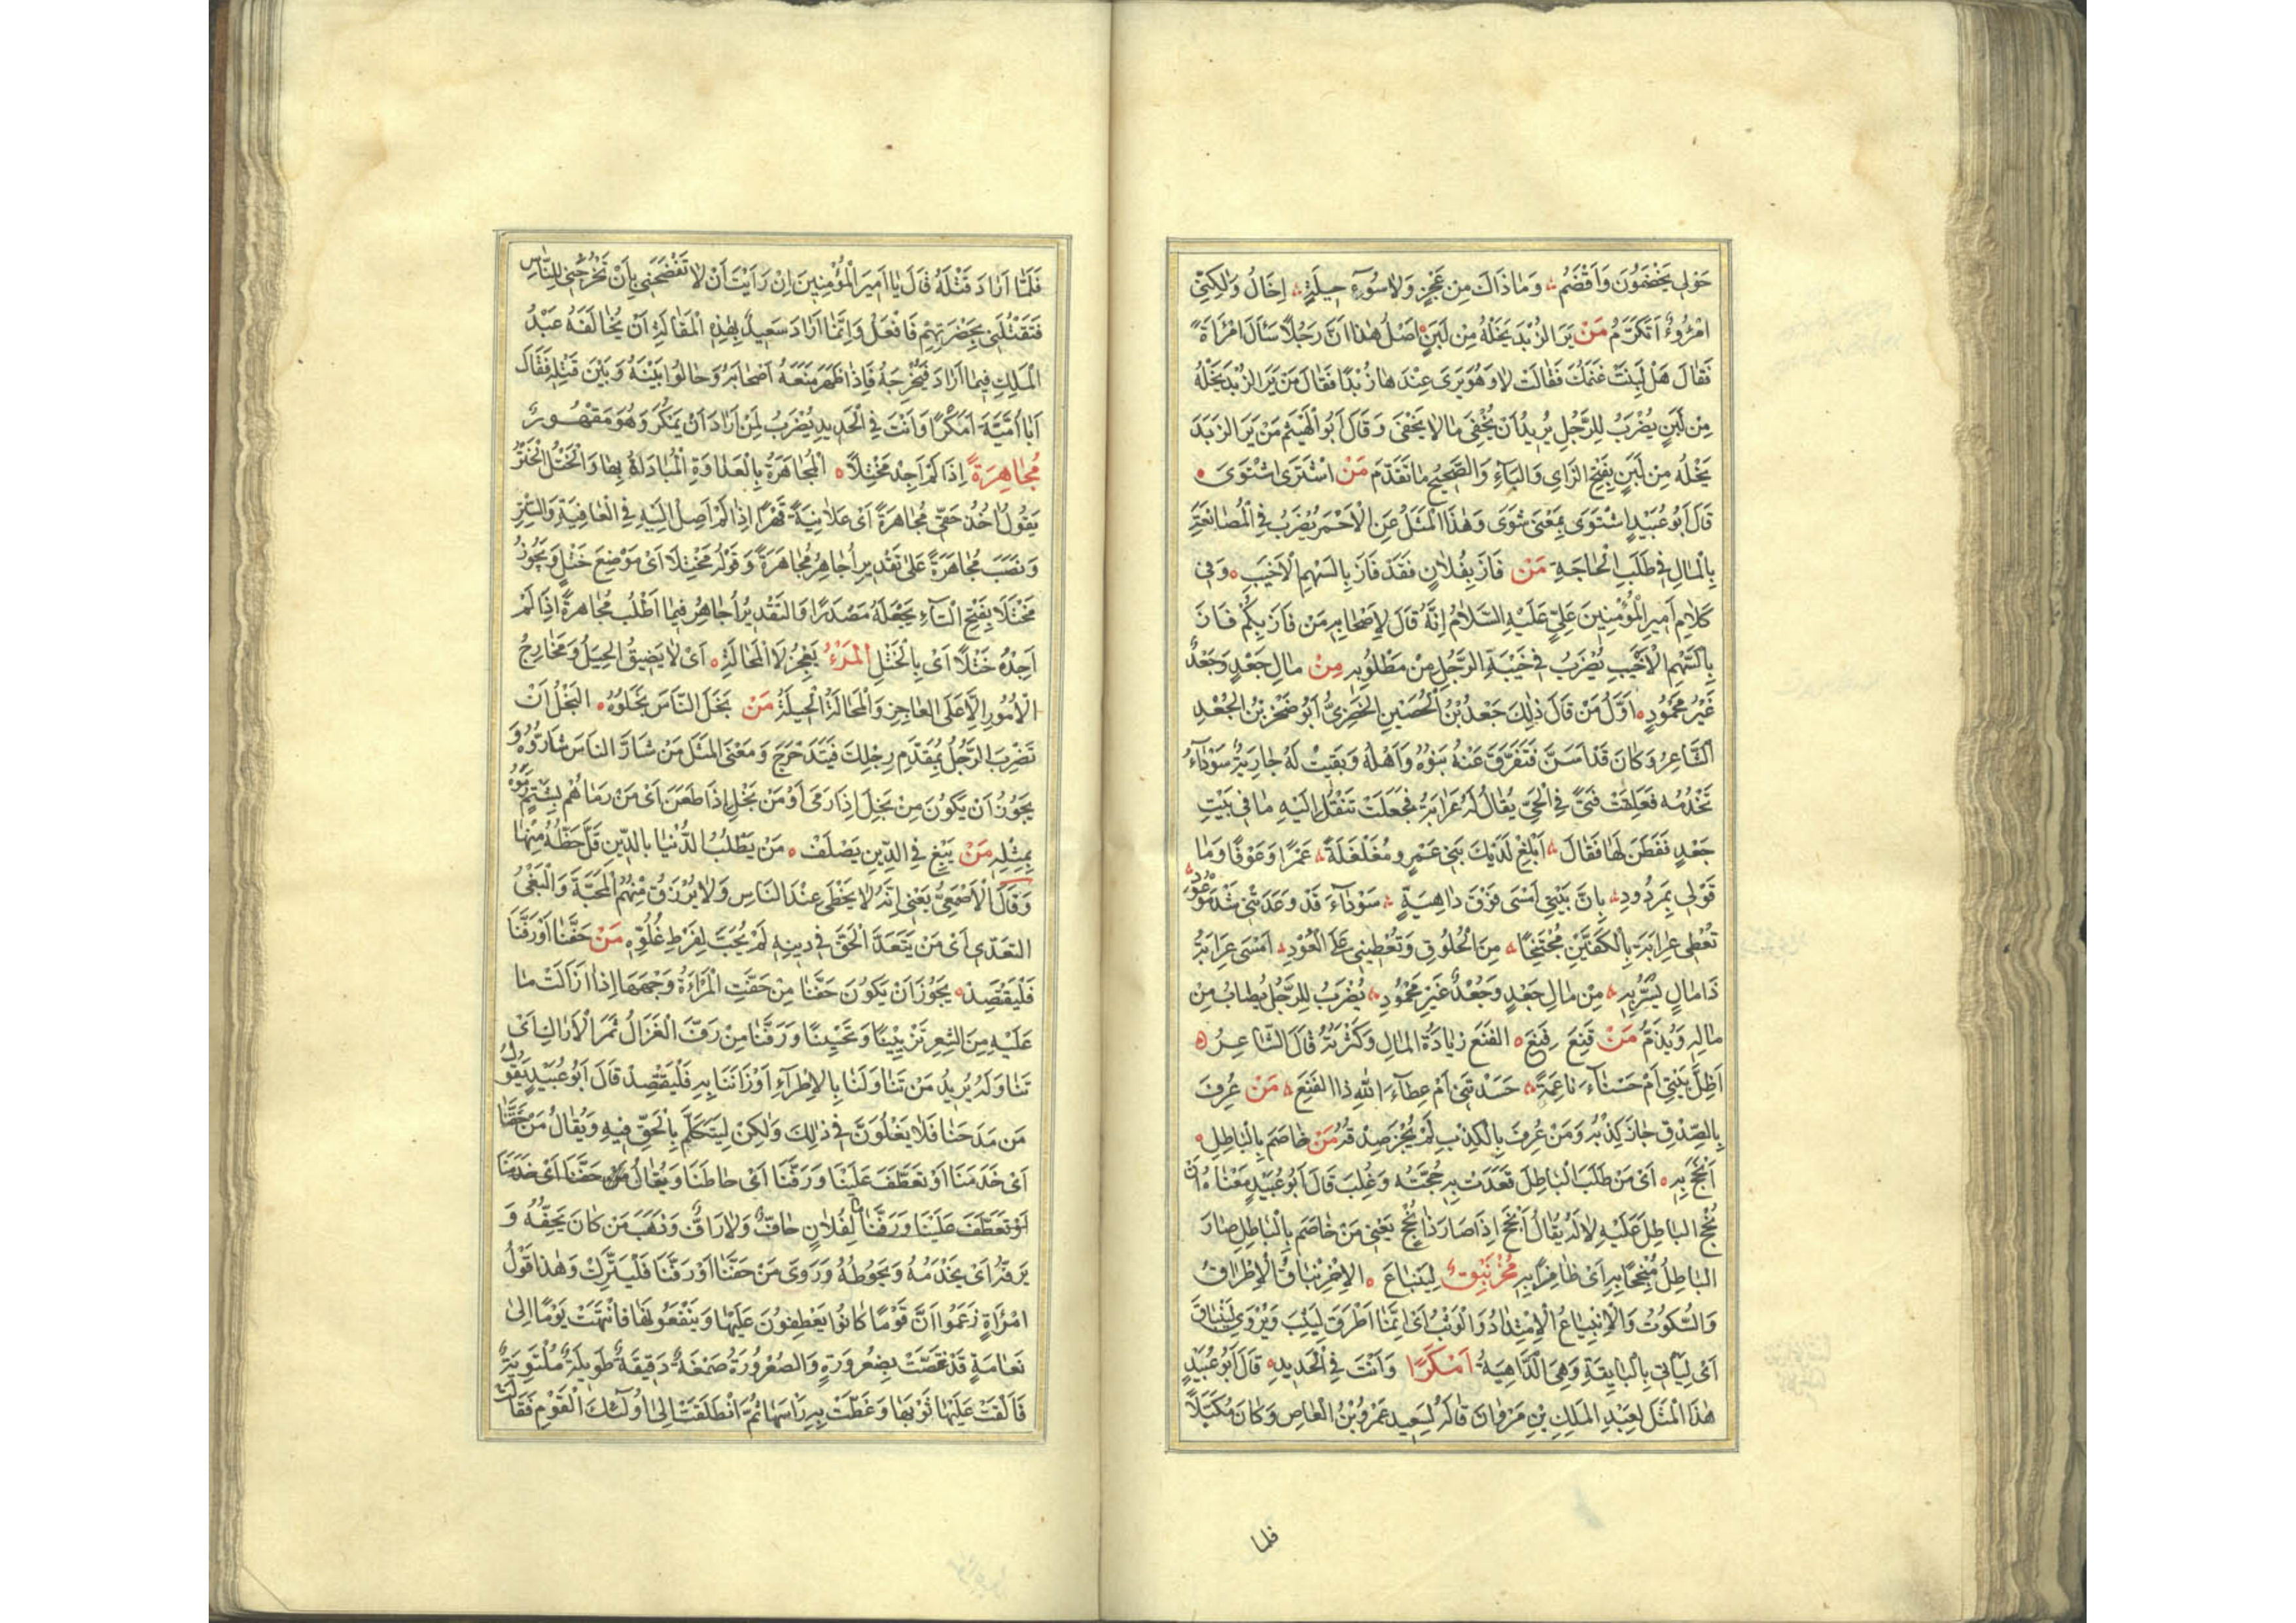 حَوْلِي يَخْضَمُونَ وَأَقْضَمُ وَمَا ذَاكَ مِنْ عَجْزٍ وَلَا سُوءِ حِيلَةٍ إِخَالُ وَلٰكِنِّي
امْرُوءٌ أَتَكَرَّمُ مَنْ يَرَ الزُّبْدَ يَخَلْهُ مِنْ لَبَنٍ اَصْلُ هٰذَا اَنَّ رَجُلًا سَاَلَ امْرَاَةً
فَقَالَ هَلْ لَبِنَتْ غَنَمُكَ فَقَالَتْ لَا وَهُوَ يَرَى عِنْدَهَا زُبْدًا فَقَالَ مَنْ يَرَ الزُّبْدَ يَخَلْهُ
مِنْ لَبَنٍ يُضْرَبُ لِلرَّجُلِ يُرِيدُ اَنْ يُخْفِيَ مَا لَا يَخْفَى وَقَالَ اَبُو الْهَيْثَمِ مَنْ يَرَ الزَبَدَ
يَخَلْهُ مِنْ لَبَنٍ بِفَتْحِ الزَايِ وَالبَآءِ وَالصَّحِيحُ مَا تَقَدَّمَ مَنْ اشْتَرَى اشْتَوَى
قَالَ اَبُو عُبَيْدٍ اشْتَوَى بِمَعْنَى شَوَى وَهٰذَا الْمَثَلُ عَنِ الْاَحْمَرِ يُضْرَبُ فِي الْمُصَانَعَةِ
بِالْمَالِ فِي طَلَبِ الْحَاجَةِ مَنْ فَازَ بِفُلَانٍ فَقَدْ فَازَ بِالسَهْمِ الْاَخْيَبِ وَفِي
كَلَامِ اَمِيرِ الْمُؤْمِنِينَ عَلِيٍّ عَلَيْهِ السَّلَامُ اِنَّهُ قَالَ لِاَصْحَابِهِ مَنْ فَازَ بِكُمْ فَازَ
بِالسَّهْمِ الْاَخْيَبِ يُضْرَبُ فِي خَيْبَةِ الرَّجُلِ مِنْ مَطْلُوبِهِ مِنْ مَالِ جَعْدٍ وَجَعْدٌ
غَيْرُ مَحْمُودٍ اَوَّلُ مَنْ قَالَ ذٰلِكَ جَعْدُ بْنُ الْحُصَيْنِ الخَضِرِيُّ اَبُو صَخْرِ بْنُ الجُعْدِ
الشَّاعِرُ وَكَانَ قَدْ اَسَنَّ فَتَفَرَّقَ عَنْهُ بَنُوهُ وَاَهْلُهُ وَبَقِيَتْ لَهُ جَارِيَةٌ سَوْدَآءُ
تَخْدُمُهُ فَعَلِقَتْ فَتًى فِي الْحَيِّ يُقَالُ لَهُ عَرَابَةُ فَجَعَلَتْ تَنْقُلُ اِلَيْهِ مَا فِي بَيْتِ
جَعْدٍ فَفَطِنَ لَهَا فَقَالَ اَبْلِغْ لَدَيْكَ بَنِي عَمْرٍو مُغَلْغَلَةً عَمْرًا وَعَوْفًا وَمَا
قَوْلِي بِمَرْدُودِ بِاَنَّ بَيْتِي اَمْسَى فَوْقَ دَاهِيَةٍ سَوْدَآءَ قَدْ وَعَدَتْنِي شَدَّ مَوْعُودِ
تُعْطِي عَرَابَةَ بِالْكَفَّيْنِ مُجْتَنِحًا مِنَ الْخُلُوقِ وَتُعْطِينِي عَلَى الْعُوْدِ اَمْسَى عَرَابَةُ
ذَا مَالٍ يُسَرُّ بِهِ مِنْ مَالِ جَعْدٍ وَجَعْدٌ غَيْرُ مَحْمُودِ يُضْرَبُ لِلرَّجُلِ يُصَابُ مِنْ
مَالِهِ وَيُذَمُّ مَنْ قَنِعَ فَنِعَ الفَنَعُ زِيَادَةُ المَالِ وَكَثْرَتُهُ قَالَ الشَّاعِرُ
اَظِلُّ بَيْتِي اَمْ حَسْنَآءَ نَاعِمَةً حَسَدْتَنِي اَمْ عَطَآءَ اللّٰهِ ذَا الفَنَعِ مَنْ عُرِفَ
بِالصِّدْقِ جَازَ كِذْبُهُ وَمَنْ عُرِفَ بِالْكِذْبِ لَمْ يُجَزْ صِدْقُهُ مَنْ خَاصَمَ بِالْبَاطِلِ
اَنْجَحَ بِهِ اَىْ مَنْ طَلَبَ الْبَاطِلَ قَعَدَتْ بِهِ حُجَّتُهُ وَغُلِبَ قَالَ اَبُو عُبَيْدٍ مَعْنَاهُ اَنَّ
نُجْحَ البَاطِلِ عَلَيْهِ لَا لَهُ يُقَالُ اَنْجَحَ اِذَا صَارَ ذَا نُجْحٍ يَعْنِي مَنْ خَاصَمَ بِالْبَاطِلِ صَارَ
البَاطِلُ مُنْجِحًا بِهِ اَيْ ظَافِرًا بِهِ مُخْرَنْبِقٌ لِيَنْبَاعَ الاِخْرِنْبَاقُ الْاِطْرَاقُ
وَالسُّكُوتُ وَالْاِنْبِيَاعُ الْاِمْتِدَادُ وَالْوَثْبُ اَىْ اِنَّمَا اَطْرَقَ لِيَثِبَ وَيُرْوَى لِيَنْبَاقَ
اَىْ لِيَأْتِيَ بِالْبَايِقَةِ وَهِيَ الْدَّاهِيَةُ اَمَكْرًا وَاَنْتَ فِي الْحَدِيدِ قَالَ اَبُو عُبَيْدٍ
هٰذَا الْمَثَلُ لِعَبْدِ المَلِكِ بْنِ مَرْوَانَ قَالَهُ لِسَعِيدِ عَمْرِو بْنِ الْعَاصِ وَكَانَ مُكَبَّلًا
فلما
فَلَمَّا اَرَادَ قَتْلَهُ قَالَ يَا اَمِيرَ الْمُؤْمِنِينَ اِنْ رَاَيْتَ اَنْ لَا تَفْضَحَنِي بِاَنْ تُخْرِجَنِي لِلنَّاسِ
فَتَقْتُلَنِي بِحَضْرَتِهِمْ فَافْعَلْ وَاِنَّمَا اَرَادَ سَعِيدٌ بِهٰذِهِ الْمَقَالَةِ اَنْ يُخَالِفَهُ عَبْدُ
الْمَلِكِ فِيمَا اَرَادَ فَيُخْرِجَهُ فَاِذَا ظَهَرَ مَنَعَهُ اَصْحَابُهُ وَحَالُوا بَيْنَهُ وَبَيْنَ قَتْلِهِ فَقَالَ
اَبَا اُمَيَّةَ اَمَكْرًا وَاَنْتَ فِي الْحَدِيدِ يُضْرَبُ لِمَنْ اَرَادَ اَنْ يَمْكُرَ وَهُوَ مَقْهُورٌ
مُجَاهَرَةً اِذَا لَمْ اَجِدْ مَخْتِلًا الْمُجَاهَرَةُ بِالْعَدَاوَةِ الْمُبَادَاةُ بِهَا وَالْخَتْلُ الْخَتْرُ
يَقُولُ آخُذُ حَقِّي مُجَاهَرَةً اَيْ عَلَانِيَةً قَهْرًا اِذَا لَمْ اَصِلْ اِلَيْهِ فِي الْعَافِيَةِ وَالسِّتْرِ
وَنَصَبَ مُجَاهَرَةً عَلَى تَقْدِيرِ اُجَاهِرُ مُجَاهَرَةً وَقَوْلُهُ مَخْتِلًا اَىْ مَوْضِعَ خَتْلٍ وَيَجُوزُ
مَخْتَلًا بِفَتْحِ التَّآءِ يَجْعَلُهُ مَصْدَرًا وَالتَقْدِيرُ اُجَاهِرُ فِيمَا اَطْلُبُ مُجَاهَرَةً اِذَا لَمْ
اَجِدْهُ خَتْلًا اَيْ بِالْخَتْلِ الْمَرْءُ يَعْجِزُ لَا الْمَحَالَةُ اَىْ لَا يَضِيقُ الْحِيَلُ وَمَخَارِجُ
الْاُمُورِ اِلَّا عَلَى العَاجِزِ وَالْمَحَالَةُ الْحِيلَةُ مَنْ نَجَلَ النَّاسَ نَجَلُوهُ النَجْلُ اَنْ
تَضْرِبَ الرَّجُلَ بِمُقَدَّمِ رِجْلِكَ فَيَتَدَحْرَجَ وَمَعْنَى المَثَلِ مَنْ شَارَّ النَاسَ شَارُّوهُ وَ
يَجُوزُ اَنْ يَكُونَ مِنْ نَجَلَ اِذَا رَمَى اَوْ مِنْ نَجَلَ اِذَا طَعَنَ اَيْ مَنْ رَمَاهُمْ بِشَتْمٍ رَمَوْهُ
بِمِثْلِهِ مَنْ يَبْغِ فِي الدِّينِ يَصْلَفْ مَنْ يَطْلُبُ الدُّنْيَا بِالدِّينِ قَلَّ حَظُّهُ مِنْهَا
وَقَالَ الْاَصْمَعِيُّ يَعْنِي اِنَّهُ لَا يَحْظَى عِنْدَ النَاسِ وَلَا يُرْزَقُ مِنْهُمُ الْمَحَبَّةَ وَالْبَغْيُ
التَعَدِّى اَىْ مَنْ يَتَعَدَّ الْحَقَّ فِي دِينِهِ لَمْ يُحَبَّ لِفَرْطِ غُلُوِّهِ مَنْ حَفَّنَا اَوْ رَفَّنَا
فَلْيَقْتَصِدْ يَجُوزُ اَنْ يَكُونَ حَفَّنَا مِنْ حَفَّتِ الْمَرْاَةُ وَجْهَهَا اِذَا اَزَالَتْ مَا
عَلَيْهِ مِنَ الشَّعْرِ تَزْيِينًا وَتَحْسِينًا وَرَفَّنَا مِنْ رَفَّ الْغَزَالُ ثَمَرَ الْاَرَاكِ اَيْ
تَنَاوَلَهُ يُرِيدُ مَنْ تَنَاوَلَنَا بِالاِطْرَآءِ اَوْ زَانَنَا بِهِ فَلْيَقْتَصِدْ قَالَ اَبُو عُبَيْدٍ يَقُولُ
مَن مَدَحَنَا فَلَا يَغْلُوَنَّ فِي ذٰلِكَ وَلٰكِنْ لِيَتَكَلَّمْ بِالْحَقِّ فِيهِ وَيُقَالُ مَنْ حَفَّنَا
اَىْ خَدَمَنَا اَوْ تَعَطَّفَ عَلَيْنَا وَرَفَّنَا اَىْ حَاطَنَا وَيُقَالُ مَنْ حَفَّنَا اَىْ خَدَمَنَا
اَوْ تَعَطَّفَ عَلَيْنَا وَرَفَّنَا لِفُلَانٍ حَافٌّ وَلَا رَافٌّ وَذَهَبَ مَن كَانَ يَحُفُّهُ وَ
يَرُفُّهُ اَىْ يَخْدُمُهُ وَيَحُوطُهُ وَرَوَى مَنْ حَفَّنَا اَوْ رَفَّنَا فَلْيَتَّرِكْ وَهٰذَا قَوْلُ
امْرَاَةٍ زَعَمُوا اَنَّ قَوْمًا كَانُوا يَعْطِفُونَ عَلَيْهَا وَيَنْفَعُونَهَا فَانْتَهَتْ يَوْمًا اِلَى
نَعَامَةٍ قَدْ غَصَّتْ بِصُعْرُورَةٍ وَالصُعْرُورَةُ صَمْغَةٌ دَقِيقَةٌ طَوِيلَةٌ مُلْتَوِيَةٌ
فَاَلْقَتْ عَلَيْهَا ثَوْبَهَا وَغَطَّتْ بِهِ رَاسَهَا ثُمَّ انْطَلَقَتْ اِلَى اُولَئِكَ الْقَوْمِ فَقَالَتْ